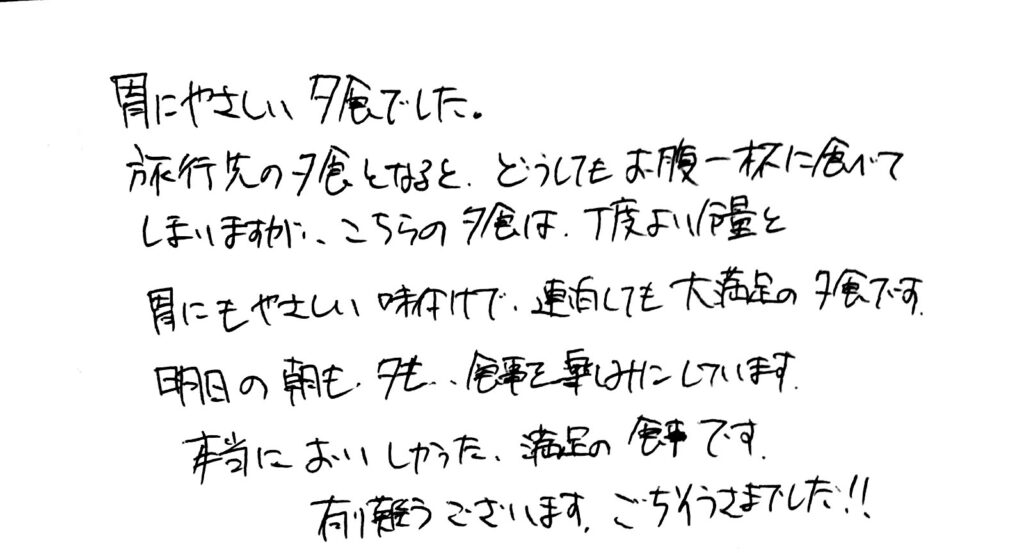 胃にやさしい夕食でした。
旅行先の夕食となると、どうしてもお腹一杯に食べて
しまいますが、こちらの夕食は、丁度よい量と
胃にもやさしい味付けで、連泊しても大満足の夕食です。
明日の朝も、夕も、食事を楽しみにしています。
本当においしかった、満足の食事です。
有り難うございます。ごちそうさまでした!!